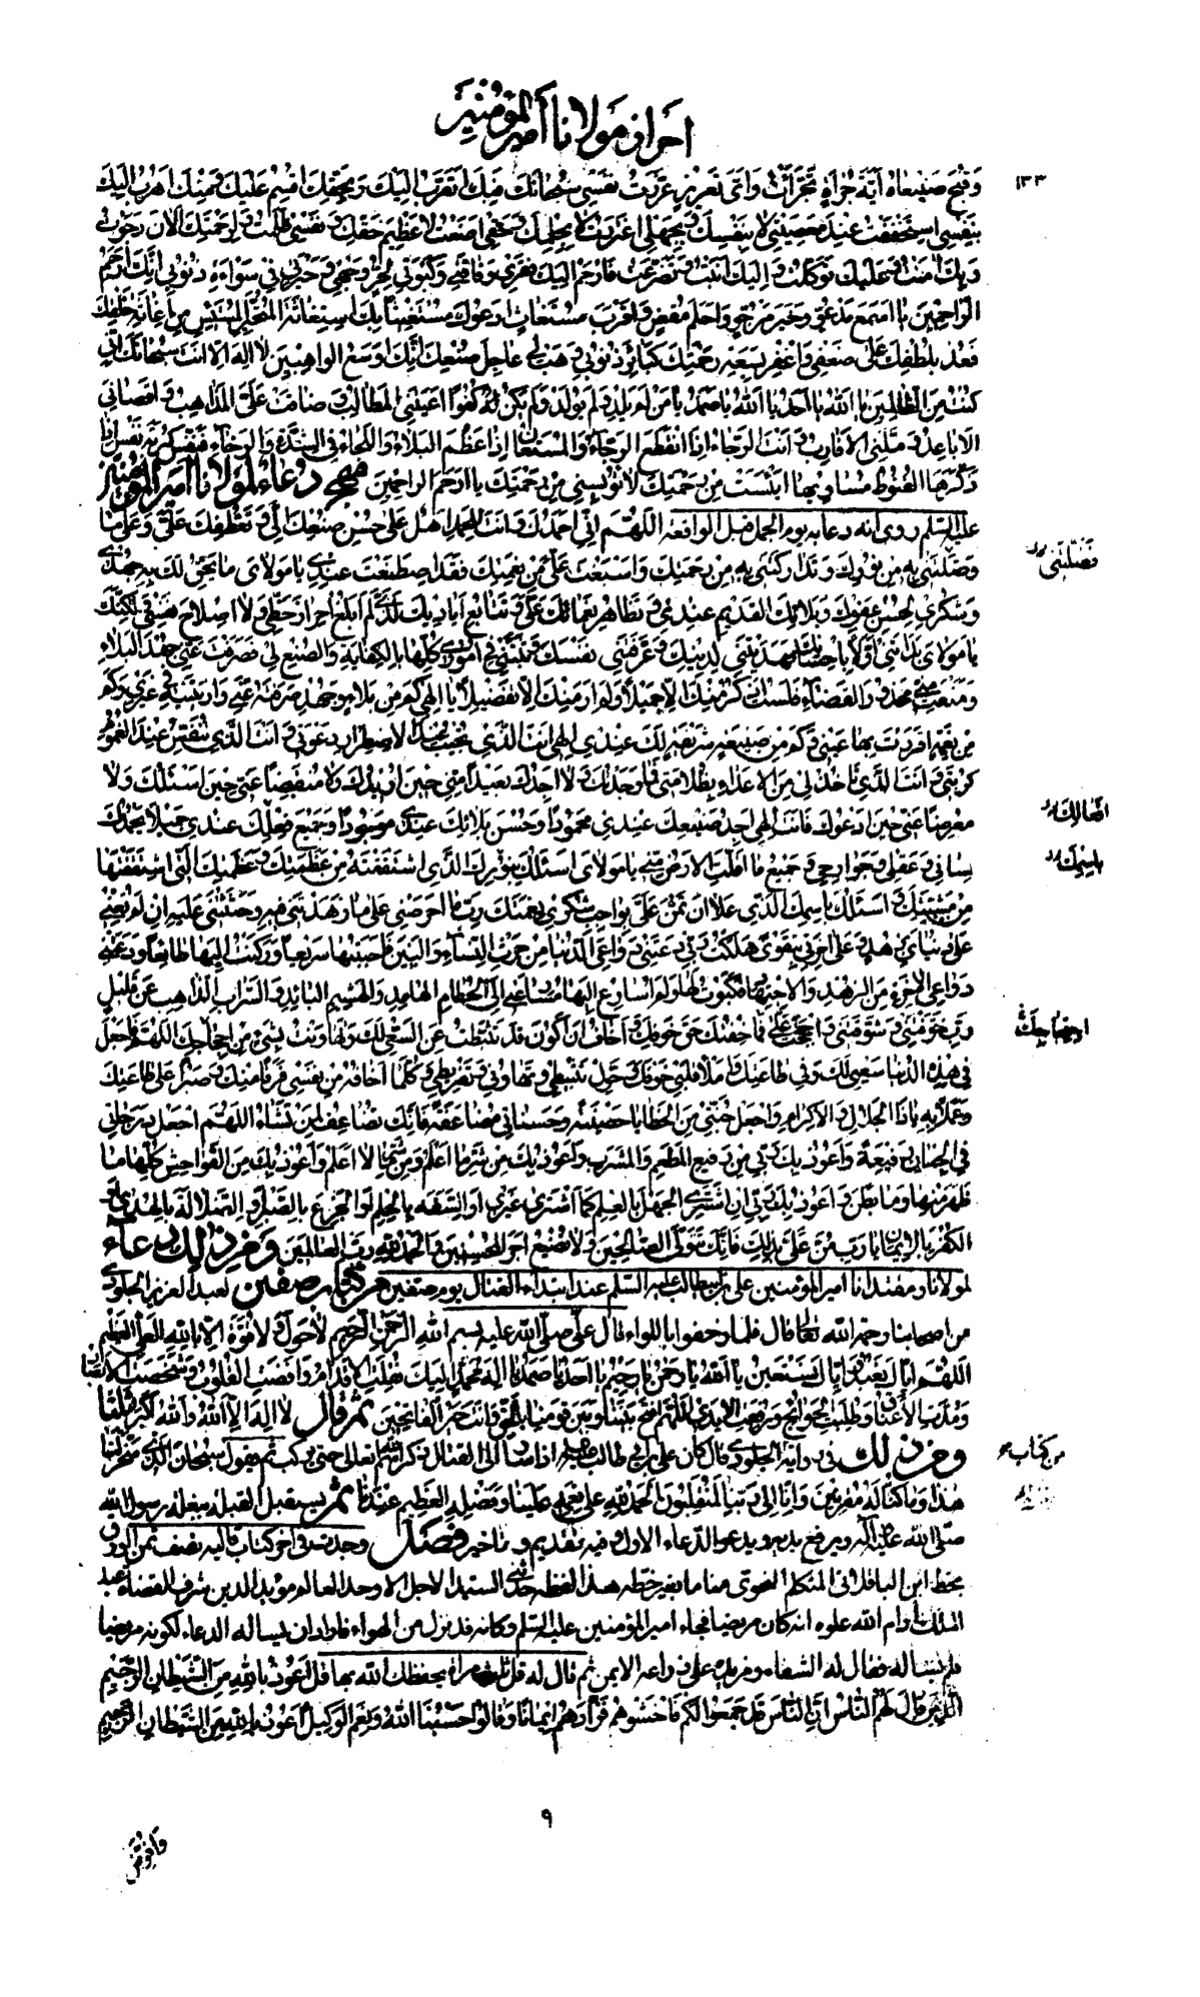 احراز مولانا أمير المؤمنين
١٣٣
وقبح صنيعاه أية جرأة تجرأت وأي تغرير غررت نفسي سبحانك فبك أتقرب إليك وبحقك أقسم عليك ومنك أهرب إليك
بنفسي استخففت عند معصيتي لا بنفسك وبجهلي اغتررت لا بحلمك وحقي أضعت لا عظيم حقك ونفسي ظلمت ولرحمتك الآن رجوت
وبك آمنت وعليك توكلت وإليك أنبت وتضرعت فارحم إليك فقري وفاقتي وكبوتي لحر وجهي وحيرتي في سوأة ذنوبي إنك أرحم
الراحمين يا أسمع مدعو وخير مرجو وأحلم مغض وأقرب مستغاث أدعوك مستغيثا بك استغاثة المتحير المستيئس من إغاثة خلقك
فعد بلطفك على ضعفي واغفر بسعة رحمتك كبائر ذنوبي وهب لي عاجل صنعك إنك أوسع الواهبين لا إله إلا أنت سبحانك إني
كنت من الظالمين يا الله يا أحد يا الله يا صمد يا من لم يلد ولم يولد ولم يكن له كفوا أعيتني المطالب وضاقت علي المذاهب وأقصاني
الأباعد وملني الأقارب وأنت الرجاء إذا انقطع الرجاء والمستعان إذا عظم البلاء واللجاء في الشدة والرخاء فنفس كربة نفس إذا
ذكرها القنوط مساويها أيئست من رحمتك لا تؤيسني من رحمتك يا أرحم الراحمين ومن دعاء لمولانا أمير المؤمنين
عليه السلم روى أنه دعا به يوم الجمل قبل الواقعة اللهم إني أحمدك وأنت للحمد أهل على حسن صنعك إلي وتعطفك علي وعلى ما
وصلتني به من نورك وتداركتني به من رحمتك وأسبغت علي من نعمتك فقد اصطنعت عندي يا مولاي ما يحق لك به جهدي
فضلتني
وشكري لحسن عفوك وبلائك القديم عندي وتظاهر نعمائك علي وتتابع أياديك لدي لم أبلغ إحراز حظي ولا إصلاح نفسي ولكنك
يا مولاي بدأتني أولا بإحسانك فهديتني لدينك وعرفتني نفسك وثبتني في أموري كلها بالكفاية والصنع لي فصرفت عني جهد البلاء
ومنعت مني محذور القضاء فلست أذكر منك إلا جميلا ولم أر منك إلا تفضيلا يا إلهي كم من بلاء وجهد صرفته عني وأريتنيه في غيري وكم
من نعمة أقررت بها عيني وكم من صنيعة شريفة لك عندي إلهي أنت الذي تجيب عند الاضطرار دعوتي وأنت الذي تنفس عند الغموم
كربتي وأنت الذي تأخذ لي من الأعداء بظلامتي فما وجدتك ولا أجدك بعيدا مني حين أريدك ولا منقبضا عني حين أسئلك ولا
معرضا عني حين أدعوك فأنت إلهي أجد صنيعك عندي محمودا وحسن بلائك عندي موجودا وجميع فعلك عندي جميلا يحمدك
افعالك
لساني وعقلي وجوارحي وجميع ما أقلت الأرض مني يا مولاي أسئلك بنورك الذي اشتققته من عظمتك وعظمتك التي اشتققتها
باسمك
من مشيتك وأسئلك باسمك الذي علا أن تمن علي بواجب شكري نعمتك رب ما أحرصني على ما زهدتني فيه وحثثتني عليه إن لم تعني
على دنياي بزهد وعلى آخرتي بتقوى هلكت ربي دعتني دواعي الدنيا من حرث النساء والبنين فأجبتها سريعا وركنت إليها طائعا ودعتني
دواعي الآخرة من الزهد والاجتهاد فكبوت لها ولم أسارع إليها مسارعتي إلى الحطام الهامد والهشيم البائد والسراب الذاهب عن قليل
رب خوفتني وشوقتني واحتججت علي فما خفتك حق خوفك وأخاف أن أكون قد تثبطت عن السعي لك وتهاونت بشيء من احتجاجك اللهم فاجعل
احتجاجك
في هذه الدنيا سعيي لك وفي طاعتك واملأ قلبي خوفك وحول تثبيطي وتهاوني وتفريطي وكلما أخافه من نفسي فرقا منك وصبرا على طاعتك
وعملا به يا ذا الجلال والإكرام واجعل جنتي من الخطايا حصينة وحسناتي مضاعفة فإنك تضاعف لمن تشاء اللهم اجعل درجاتي
في الجنان رفيعة وأعوذ بك ربي من رفيع المطعم والمشرب وأعوذ بك من شر ما أعلم ومن شر ما لا أعلم وأعوذ بك من الفواحش كلها ما
ظهر منها وما بطن وأعوذ بك ربي أن أشتري الجهل بالعلم كما اشترى غيري أو السفه بالحلم أو الجزع بالصبر أو الضلالة بالهدى أو
الكفر بالإيمان يا رب من علي بذلك فإنك تتولى الصالحين ولا تضيع أجر المحسنين والحمد لله رب العالمين ومن ذلك دعاء
لمولانا ومقتدانا أمير المؤمنين علي بن أبي طالب عليه السلم عند ابتداء القتال يوم صفين من كتاب صفين لعبد العزيز الجلودي
من أصحابنا رحمه الله تعالى قال فلما زحفوا باللواء قال علي صلى الله عليه بسم الله الرحمن الرحيم لا حول ولا قوة إلا بالله العلي العظيم
اللهم إياك نعبد وإياك نستعين يا الله يا رحمن يا رحيم يا أحد يا صمد يا إله محمد إليك نقلت الأقدام وأفضت القلوب وشخصت الأبصار
ومدت الأعناق وطلبت الحوائج ورفعت الأيدي اللهم افتح بيننا وبين قومنا بالحق وأنت خير الفاتحين ثم قال لا إله إلا الله والله أكبر ثلثا
ومن ذلك في رواية الجلودي قال كان علي بن أبي طالب عليه السلم إذا سار إلى القتال ذكر اسم الله تعالى حتى يركب ثم يقول سبحان الذي سخر لنا
من كتاب
هذا وما كنا له مقرنين وإنا إلى ربنا لمنقلبون الحمد لله على نعمه علينا وفضله العظيم عندنا ثم يستقبل القبلة ببغلة رسول الله
صلى الله عليه وآله ويرفع يديه ويدعو الدعاء الأول وفيه تقديم وتأخير فصل وجدت في آخر كتاب قالبه نصف ثمن الورق
بخط ابن الباقلاني المتكلم النحوي مناما بغير خطه هذا لفظه حدثني السيد الأجل الأوحد العالم مؤيد الدين شرف القضاة عبد
الملك أدام الله علوه أنه كان مريضا فجاء أمير المؤمنين عليه السلم وكأنه قد نزل من الهواء فأراد أن يسأله الدعاء لكونه مريضا
فلم يسأله فقال له الشفاء ومر يده على ذراعه الأيمن ثم قال له قل ثلث مرات يحفظك الله بها قل أعوذ بالله من الشيطان الرجيم
الذين قال لهم الناس إن الناس قد جمعوا لكم فاخشوهم فزادهم إيمانا وقالوا حسبنا الله ونعم الوكيل أعوذ بالله من الشيطان الرجيم
٩
وأفوض